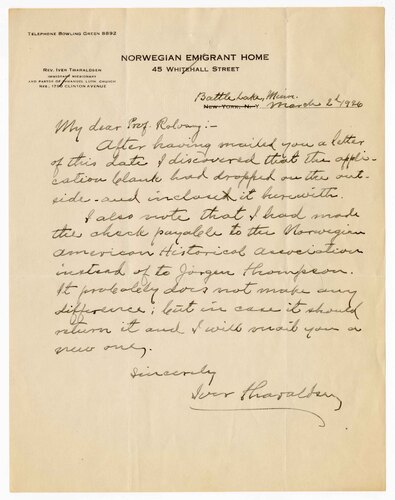 TELEPHONE BOWLING GREEN 8892
NORWEGIAN EMIGRANT HOME
45 WHITEHALL STREET
REV. IVER THARALDSEN
IMMIGRANT MISSIONARY
AND PASTOR OF IMMANUEL LUTH. CHURCH
RES., 1750 CLINTON AVENUE
Battle Lake, Minn.
NEW YORK, N. Y. March 2d 1926
My dear Prof. Rolvaag:-
After having mailed you a letter
of this date I discovered that the appli-
cation blank had dropped on the out-
side - and inclose it herewith.
I also note that I had made
the check payable to the Norwegian
American Historical Association
instead of to Jörgen Thompson.
It probably does not make any
difference; but in case it should
return it and I will mail you a
new one.
Sincerely
Iver Tharaldsen